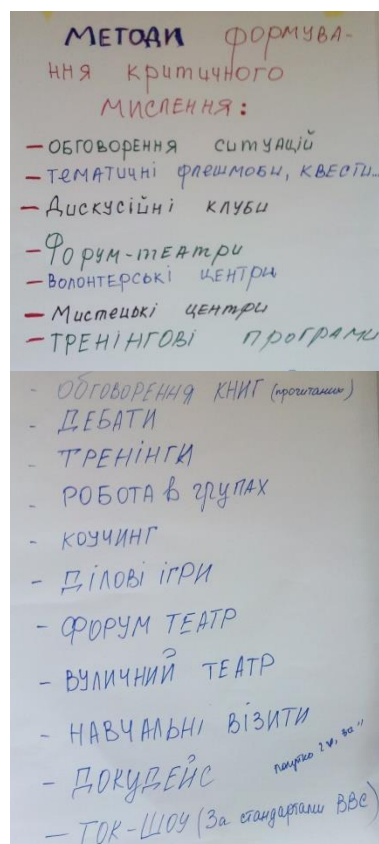 МЕТОДИ формува-
ння критичного
мислення:
- обговорення ситуацій
- тематичні флешмоби, квести...
- Дискусійні клуби
- Форум-театри
- волонтерські центри
- Мистецькі центри
- ТРЕНІНГОВІ програми
- ОБГОВОРЕННЯ КНИГ (прочитаних)
- ДЕБАТИ
- ТРЕНІНГИ
- РОБОТА в групах
- КОУЧИНГ
- ДІЛОВІ ІГРИ
- ФОРУМ ТЕАТР
- ВУЛИЧНИЙ ТЕАТР
- НАВЧАЛЬНІ ВІЗИТИ
- ДОКУДЕЙС
- ТОК-ШОУ (За стандартами ВВС)